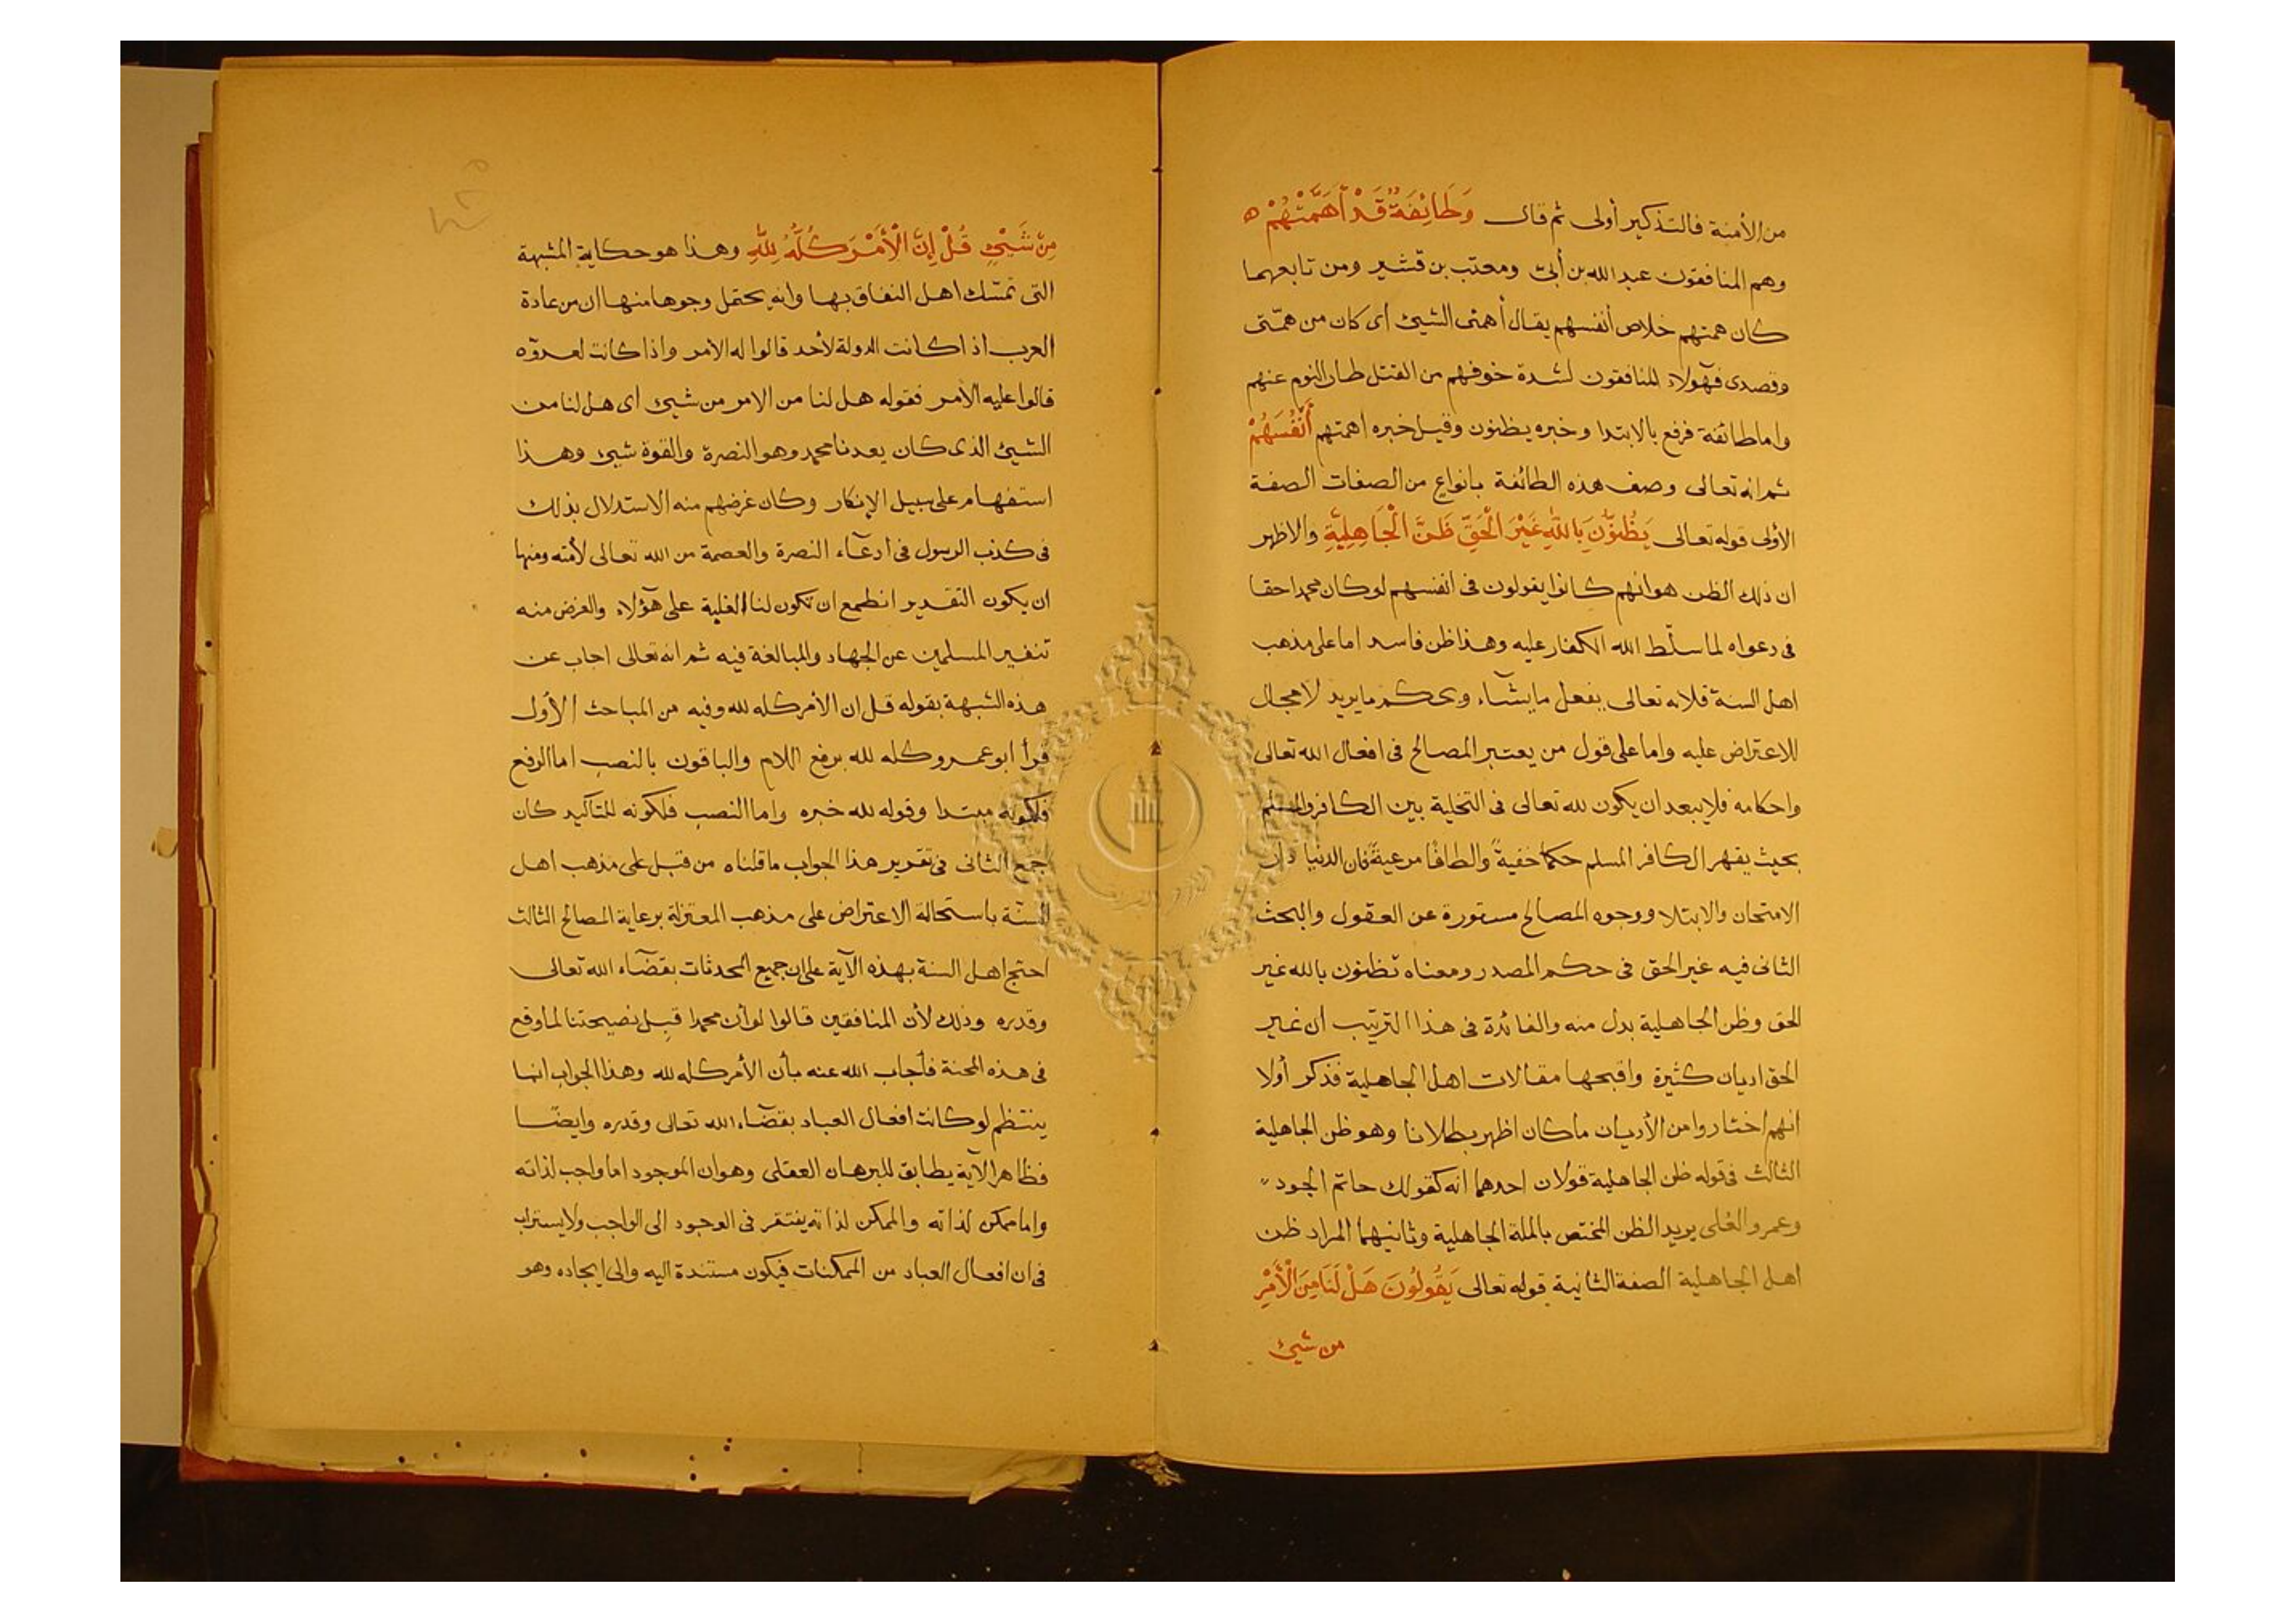 من الأمنة فالتذكير أولى ثم قال وَطَائِفَةٌ قَدْ أَهَمَّتْهُمْ ه
وهم المنافقون عبد الله بن أبىّ ومعتب بن قشير ومن تابعهما
كان همتهم خلاص أنفسهم يقال أهمنى الشيئ أى كان من همّتى
وقصدى فهؤلآء المنافقون لشدة خوفهم من القتل طار النوم عنهم
واما طائفة فرفع بالابتدا وخبره يظنون وقيل خبره اهمتهم أَنْفُسَهُمْ
ثم انه تعالى وصف هذه الطائفة بانواع من الصفات الصفة
الأولى قوله تعالى يَظُنُّونَ بِاللّٰهِ غَيْرَ الْحَقِّ ظَنَّ الْجَاهِلِيَّةِ والاظهر
ان ذلك الظن هو انهم كانوا يقولون فى انفسهم لو كان محمدا حقا
فى دعواه لما سلّط الله الكفار عليه وهذا ظن فاسد اما على مذهب
اهل السنة فلانه تعالى يفعل ما يشآء ويحكم ما يريد لا مجال
للاعتراض عليه واما على قول من يعتبر المصالح فى افعال الله تعالى
واحكامه فلا يبعد ان يكون لله تعالى فى التخلية بين الكافر والمسلم
بحيث يقهر الكافر المسلم حكما خفيةً والطافًا مرعيةً فان الدنيا دار
الامتحان والابتلا ووجوه المصالح مستورة عن العقول والبحث
الثانى فيه غير الحق فى حكم المصدر ومعناه تظنون بالله غير
الحق وظن الجاهلية بدل منه والفائدة فى هذا الترتيب أن غير
الحق اديان كثيرة واقبحها مقالات اهل الجاهلية فذكر أولا
انهم اختاروا من الأديان ما كان اظهر بطلانا وهو ظن الجاهلية
الثالث فى قوله ظن الجاهلية قولان احدهما انه كقولك حاتم الجود
وعمرو العُلى يريد الظن المختص بالملة الجاهلية وثانيهما المراد ظن
اهل الجاهلية الصفة الثانية قوله تعالى يَقُولُونَ هَلْ لَنَا مِنَ الْأَمْرِ
من شيئ
مِنْ شَيْئٍ قُلْ إِنَّ الْأَمْرَ كُلَّهُ لِلّٰهِ وهذا هو حكاية الشبهة
التى تمسّك اهل النفاق بها وانه يحتمل وجوها منها ان من عادة
العرب اذا كانت الدولة لأحد قالوا له الأمر واذا كانت لعدوّه
قالوا عليه الأمر فقوله هل لنا من الامر من شيئ أى هل لنا من
الشيئ الذى كان يعدنا محمد وهو النصرة والقوة شيئ وهذا
استفهام على سبيل الإنكار وكان غرضهم منه الاستدلال بذلك
فى كذب الرسول فى ادعآء النصرة والعصمة من الله تعالى لأمته ومنها
ان يكون التقدير انطمع ان تكون لنا الغلبة على هؤلاء والغرض منه
تنفير المسلمين عن الجهاد والمبالغة فيه ثم انه تعالى اجاب عن
هذه الشبهة بقوله قل ان الأمر كله لله وفيه من المباحث الأول
قرأ ابو عمرو كله لله برفع اللام والباقون بالنصب اما الرفع
فلكونه مبتدا وقوله لله خبره واما النصب فلكونه للتأكيد كان
جمع الثانى فى تقرير هذا الجواب ما قلناه من قبل على مذهب اهل
السنّة باستحالة الاعتراض على مذهب المعتزلة برعاية المصالح الثالث
احتج اهل السنة بهذه الآية على ان جميع المحدثات بقضآء الله تعالى
وقدره وذلك لأن المنافقين قالوا لو أن محمدا قبِل نصيحتنا لما وقع
فى هذه المحنة فأجاب الله عنه بأن الأمر كله لله وهذا الجواب انما
ينتظم لو كانت افعال العباد بقضآء الله تعالى وقدره وايضًا
فظاهر الآية يطابق للبرهان العقلى وهو ان الموجود اما واجب لذاته
واما ممكن لذاته والممكن لذاته يفتقر فى الوجود الى الواجب ولا يستراب
فى ان افعال العباد من الممكنات فيكون مستندة اليه والى ايجاده وهو